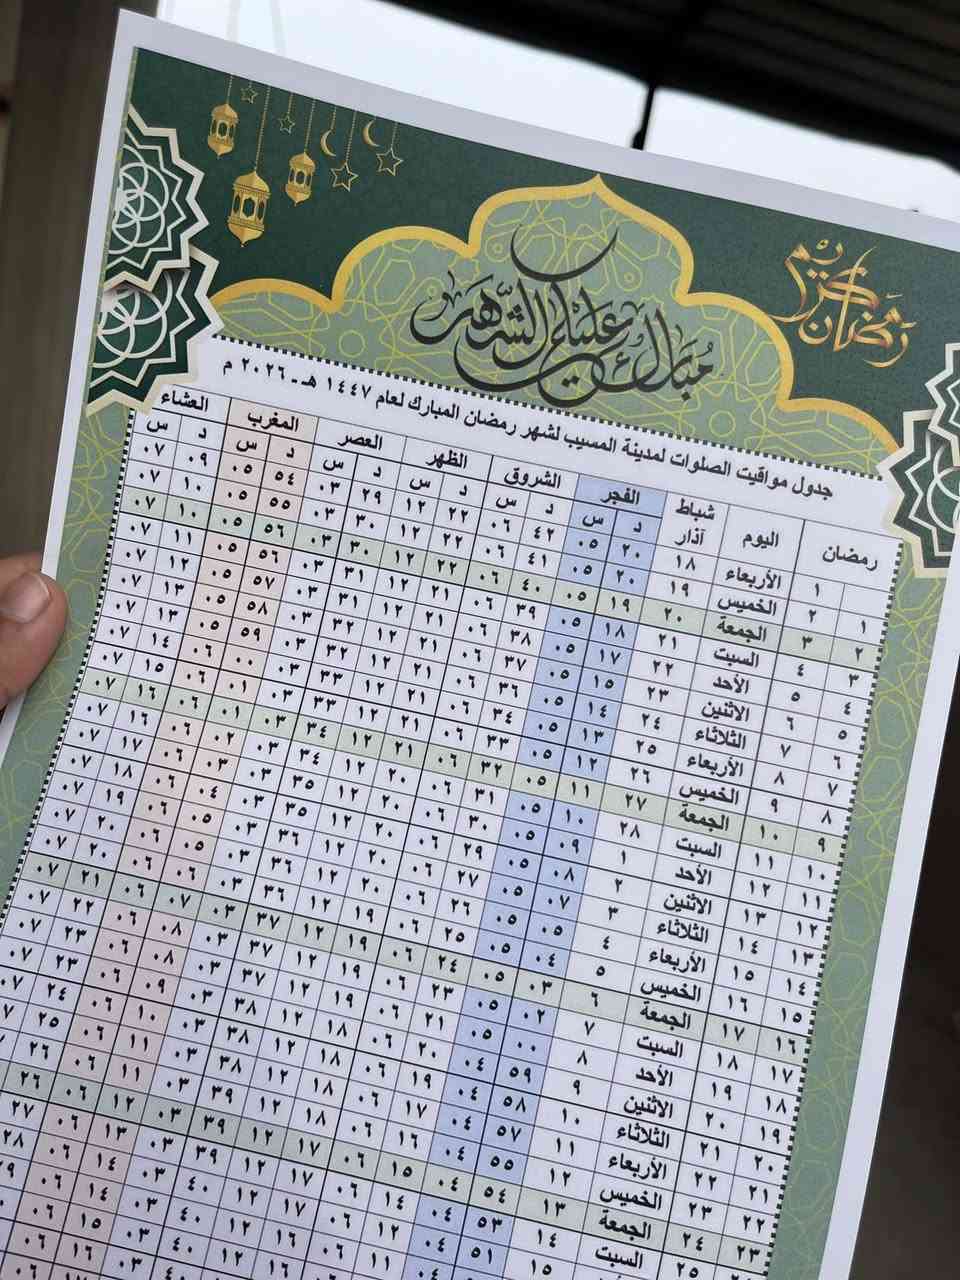 رمضان كريم
مبارك عليكم الشهر
جدول مواقيت الصلوات لمدينة المسيب لشهر رمضان المبارك لعام ١٤٤٧ هـ ـ ٢٠٢٦ م
رمضان اليوم شباط آذار الفجر الشروق الظهر العصر المغرب العشاء
د س د س د س د س د س د س
١ الأربعاء ١٨ ٢٠ ٠٥ ٤٢ ٠٦ ٢٢ ١٢ ٢٩ ٠٣ ٥٤ ٠٥ ٠٩ ٠٧
١ ٢ الخميس ١٩ ٢٠ ٠٥ ٤١ ٠٦ ٢٢ ١٢ ٣٠ ٠٣ ٥٥ ٠٥ ١٠ ٠٧
٢ ٣ الجمعة ٢٠ ١٩ ٠٥ ٤٠ ٠٦ ٢٢ ١٢ ٣٠ ٠٣ ٥٦ ٠٥ ١٠ ٠٧
٣ ٤ السبت ٢١ ١٨ ٠٥ ٣٩ ٠٦ ٢١ ١٢ ٣١ ٠٣ ٥٦ ٠٥ ١١ ٠٧
٤ ٥ الأحد ٢٢ ١٧ ٠٥ ٣٨ ٠٦ ٢١ ١٢ ٣١ ٠٣ ٥٧ ٠٥ ١٢ ٠٧
٥ ٦ الاثنين ٢٣ ١٥ ٠٥ ٣٧ ٠٦ ٢١ ١٢ ٣٢ ٠٣ ٥٨ ٠٥ ١٣ ٠٧
٦ ٧ الثلاثاء ٢٤ ١٤ ٠٥ ٣٦ ٠٦ ٢١ ١٢ ٣٢ ٠٣ ٥٩ ٠٥ ١٣ ٠٧
٧ ٨ الأربعاء ٢٥ ١٣ ٠٥ ٣٤ ٠٦ ٢١ ١٢ ٣٣ ٠٣ ٠٠ ٠٦ ١٤ ٠٧
٨ ٩ الخميس ٢٦ ١٢ ٠٥ ٣٣ ٠٦ ٢١ ١٢ ٣٣ ٠٣ ٠١ ٠٦ ١٥ ٠٧
٩ ١٠ الجمعة ٢٧ ١١ ٠٥ ٣٢ ٠٦ ٢١ ١٢ ٣٤ ٠٣ ٠١ ٠٦ ١٦ ٠٧
١٠ ١١ السبت ٢٨ ١٠ ٠٥ ٣١ ٠٦ ٢٠ ١٢ ٣٤ ٠٣ ٠٢ ٠٦ ١٦ ٠٧
١١ ١٢ الأحد ١ ٠٩ ٠٥ ٣٠ ٠٦ ٢٠ ١٢ ٣٥ ٠٣ ٠٣ ٠٦ ١٧ ٠٧
١٢ ١٣ الاثنين ٢ ٠٨ ٠٥ ٢٩ ٠٦ ٢٠ ١٢ ٣٥ ٠٣ ٠٤ ٠٦ ١٨ ٠٧
١٣ ١٤ الثلاثاء ٣ ٠٧ ٠٥ ٢٧ ٠٦ ٢٠ ١٢ ٣٦ ٠٣ ٠٥ ٠٦ ١٩ ٠٧
١٤ ١٥ الأربعاء ٤ ٠٥ ٠٥ ٢٦ ٠٦ ٢٠ ١٢ ٣٦ ٠٣ ٠٥ ٠٦ ٢٠ ٠٧
١٥ ١٦ الخميس ٥ ٠٤ ٠٥ ٢٥ ٠٦ ١٩ ١٢ ٣٦ ٠٣ ٠٦ ٠٦ ٢٠ ٠٧
١٦ ١٧ الجمعة ٦ ٠٣ ٠٥ ٢٤ ٠٦ ١٩ ١٢ ٣٧ ٠٣ ٠٧ ٠٦ ٢١ ٠٧
١٧ ١٨ السبت ٧ ٠٢ ٠٥ ٢٣ ٠٦ ١٩ ١٢ ٣٧ ٠٣ ٠٨ ٠٦ ٢٢ ٠٧
١٨ ١٩ الأحد ٨ ٠٠ ٠٥ ٢١ ٠٦ ١٩ ١٢ ٣٧ ٠٣ ٠٨ ٠٦ ٢٣ ٠٧
١٩ ٢٠ الاثنين ٩ ٥٩ ٠٤ ٢٠ ٠٦ ١٨ ١٢ ٣٨ ٠٣ ٠٩ ٠٦ ٢٣ ٠٧
٢٠ ٢١ الثلاثاء ١٠ ٥٨ ٠٤ ١٩ ٠٦ ١٨ ١٢ ٣٨ ٠٣ ١٠ ٠٦ ٢٤
٢١ ٢٢ الأربعاء ١١ ٥٧ ٠٤ ١٧ ٠٦ ١٨ ١٢ ٣٨ ٠٣ ١١ ٠٦ ٢٥
٢٢ ٢٣ الخميس ١٢ ٥٥ ٠٤ ١٦ ٠٦ ١٨ ١٢ ٣٩ ٠٣ ١١ ٠٦ ٢٦
٢٣ ٢٤ الجمعة ١٣ ٥٤ ٠٤ ١٥ ٠٦ ١٧ ١٢ ٣٩ ٠٣ ١٢ ٠٦ ٢٦
٢٥ السبت ١٤ ٥٣ ٠٤ ١٤ ٠٦ ١٧ ١٢ ٣٩ ٠٣ ١٣ ٠٦ ٢٧
١٥ ٥١ ٠٤ ١٢ ٠٦ ١٧ ١٢ ٤٠ ٠٣ ١٤ ٠٦ ٢٨